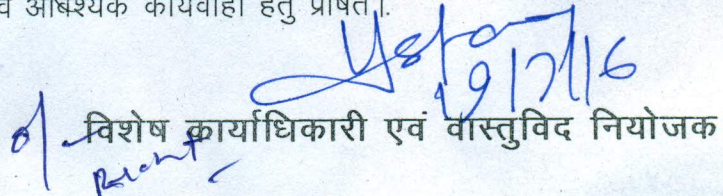 व आवश्यक कार्यवाही हेतु प्रेषित।
19/7/16
विशेष कार्याधिकारी एवं वास्तुविद नियोजक